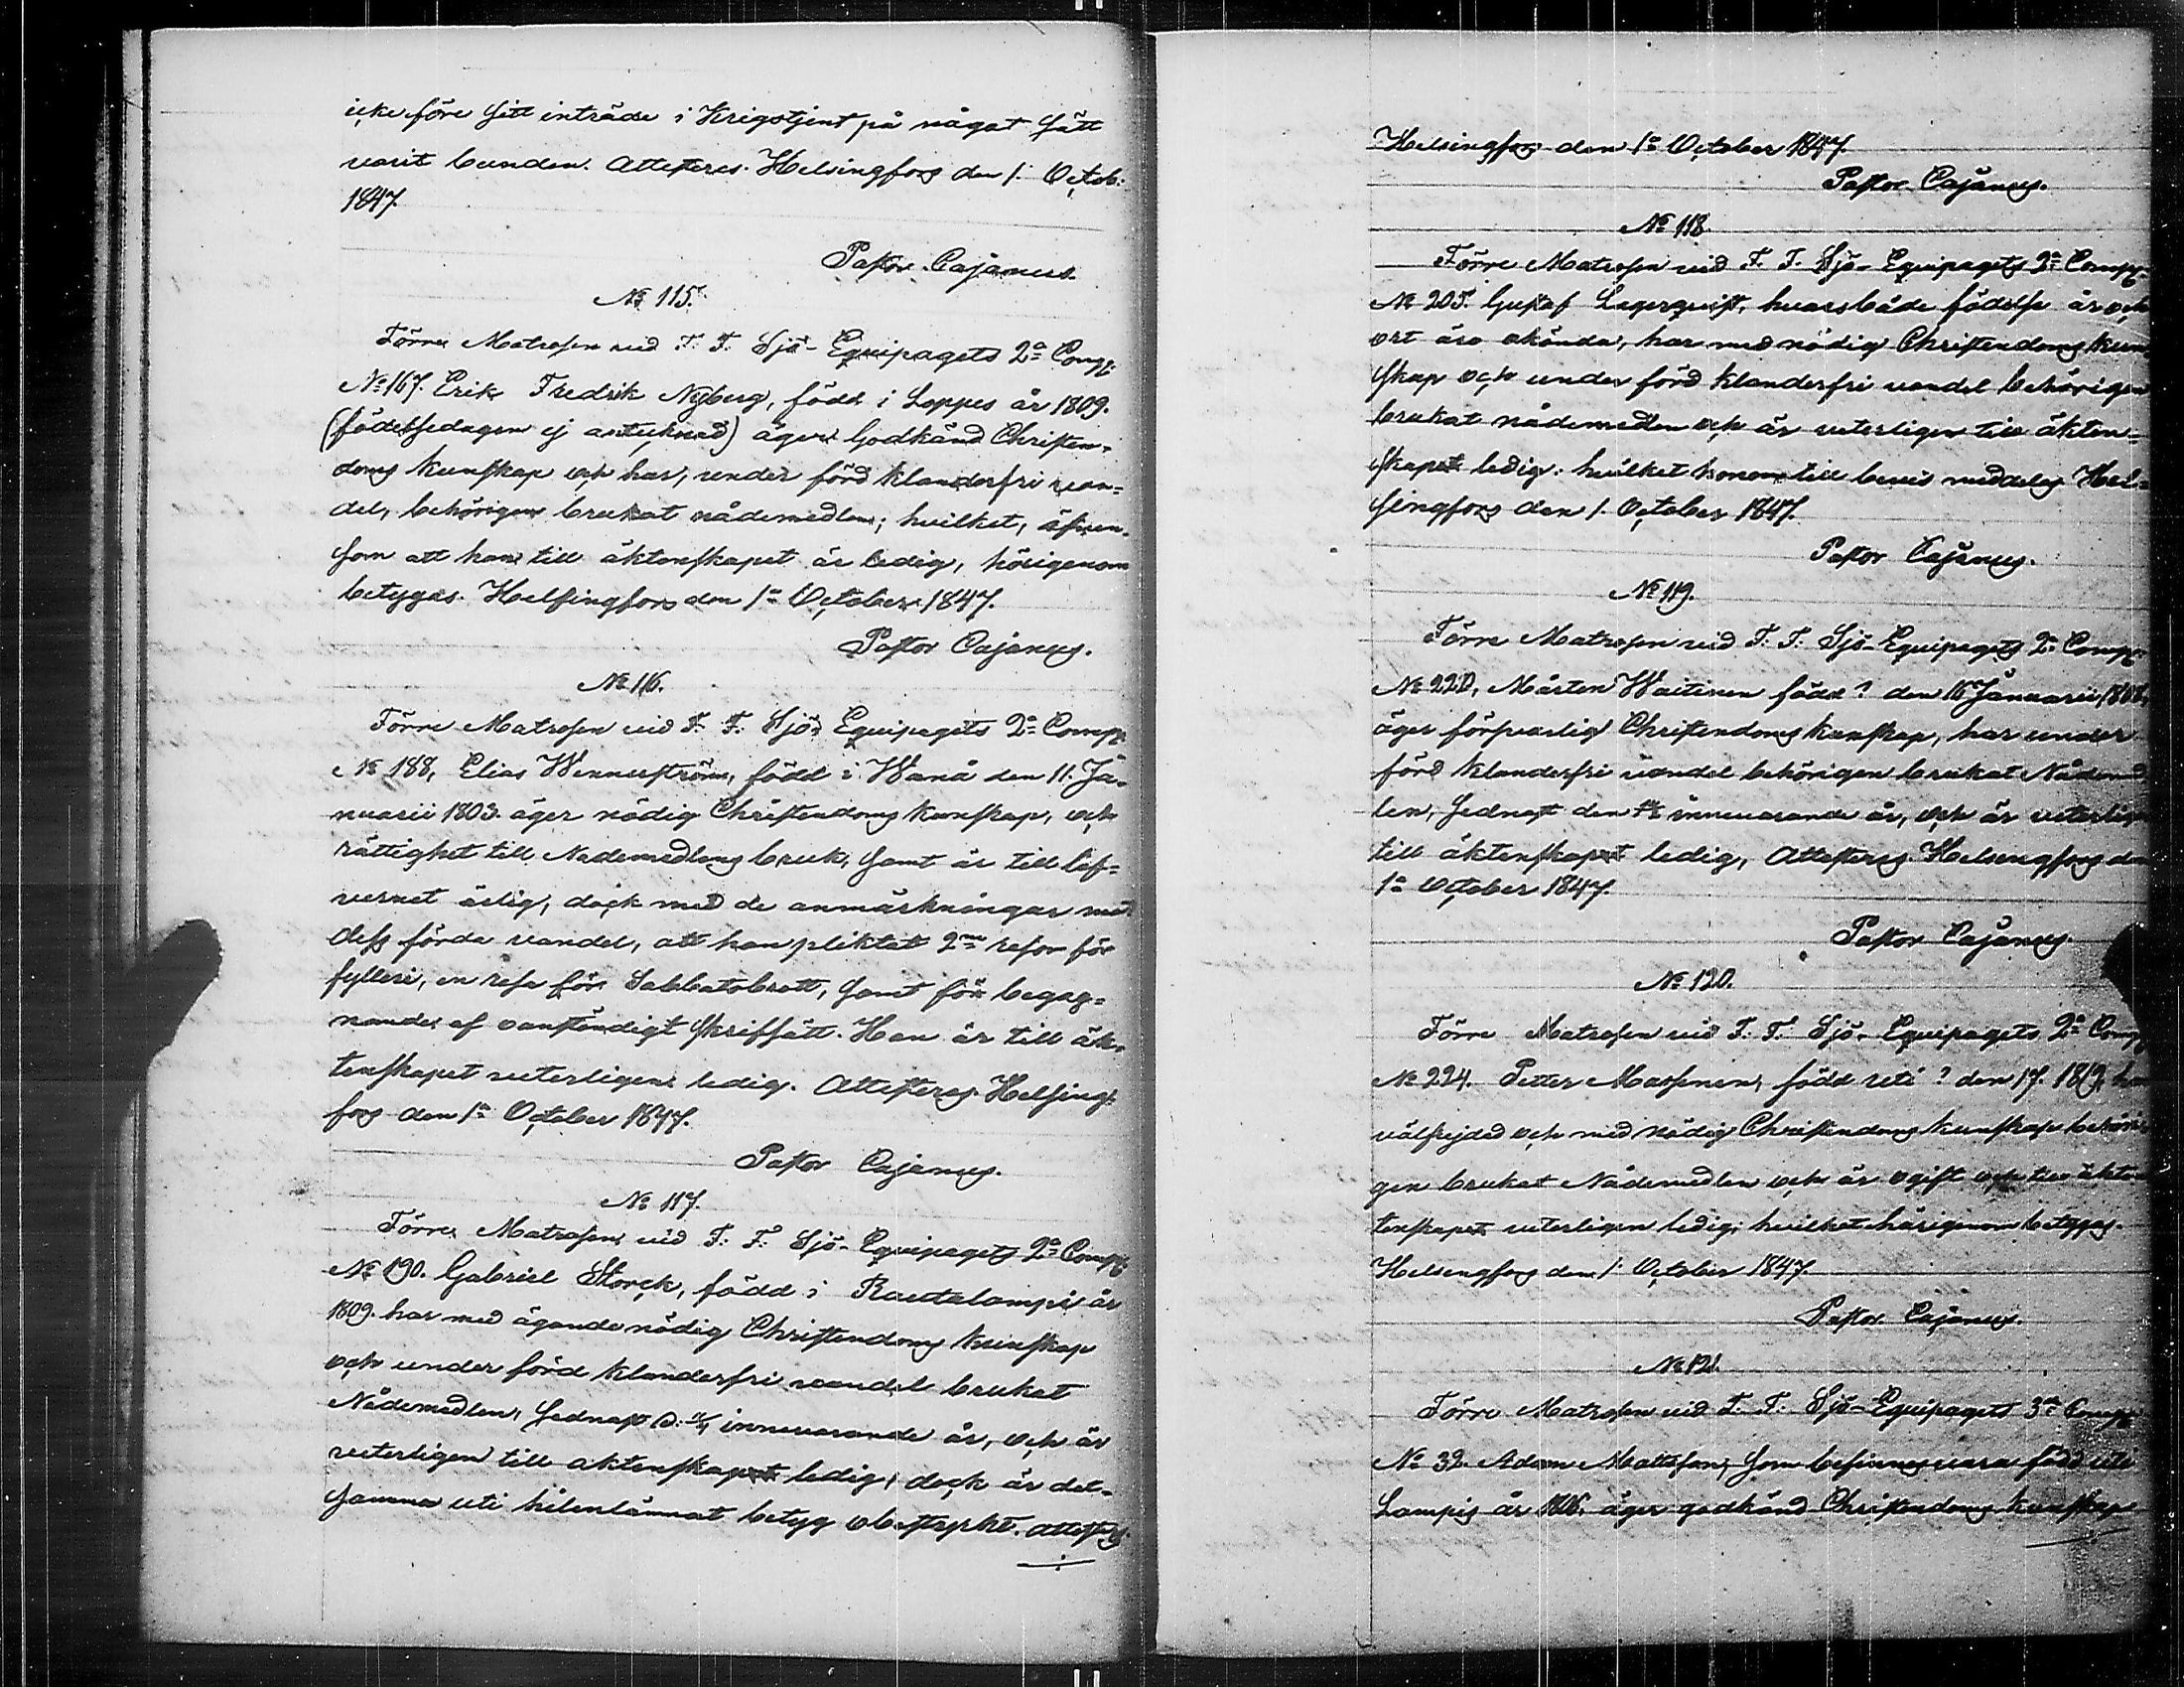 icke före sitt inträde i Krigstjenst på något sätt
varit bunden. Attesteres. Helsingfors den 1. Octob:
1847.
Pastor Cajanus.
No 115.
Förre Matrosen vid F. F. Sjö-Equipagets 2a Comp:
No 167. Erik Fredrik Nyberg, född i Loppes år 1809.
(födelsedagen ej antecknad) äger Godkänd Christen-
doms kunskap och har, under förd klanderfri van-
del, behörigen brukat nådemedlen; hvilket, äfven-
som att han till äktenskapet är ledig, härigenom
betygas. Helsingfors den 1a October 1847.
Pastor Cajanus.
No 116.
Förre Matrosen vid F. F. Sjö-Equipagets 2a Comp:
No 188, Elias Wennerström, född i Wanå den 11. Ja-
nuarii 1803. äger nödig Christendoms kunskap, och
rättighet till Nademedlens bruk, samt är till lef-
vernet ärlig, dock med de anmärkningar mot
dess förda vandel, att han pliktat 2ne resor för
fylleri, en resa för Sabbatsbrott, samt för begag-
nande af oanständigt skrifsätt. Han är till äk-
tenskapet veterligen ledig. Attesteres. Helsing-
fors den 1a October 1847.
Pastor Cajanus.
No 117.
Förre Matrosen vid F. F. Sjö-Equipagets 2a Comp:
No 190. Gabriel Storck, född i Rautalampi år
1809. har med ägande nödig Christendoms kunskap
och under förd klanderfri vandel brukat
Nådemedlen, sednast d. innevarande år, och är
veterligen till aktenskapet ledig, dock är det-
samma uti hitlemnat betyg obestyrkt. Attesteres
Helsingfors den 1a October 1847.
Pastor Cajanus.
No 118.
Förre Matrosen vid F. F. Sjö-Equipagets 2a Comp:
No 205. Gustaf Lagerqvist, hvars både födelse år och
ort äro okända, har med nödig Christendoms kun-
skap och under förd klanderfri vandel behörigen
brukat nådemedlen och är veterligen till äkten-
skapet ledig; hvilket honom till bevis meddelas Hel-
singfors den 1. October 1847.
Pastor Cajanus.
No 119.
Förre Matrosen vid F. F. Sjö-Equipagets 2a Comp:
No 220, Mårten Waitinen född? den 16 Januarii 1808,
äger försvarlig Christendoms kunskap, har under
förd klanderfri vandel behörigen brukat Nådemed-
len, sednast den innevarande år, och är veterligen
till äktenskapet ledig, Attesteres. Helsingfors den
1a October 1847.
Pastor Cajanus.
No 120.
Förre Matrosen vid F. F. Sjö-Equipagets 2a Comp:
No 224. Petter Massinen, född uti? den 17. 1819, har
välfrejdad och med nödig Christendoms kunskap behöri-
gen brukat Nådemedlen och är ogift och till äkten-
tenskapet veterligen ledig; hvilket härigenom betygas.
Helsingfors den 1. October 1847.
Pastor Cajanus.
No 121.
Förre Matrosen vid F. F. Sjö-Equipagets 3a Comp:
No 32. Adam Mattsson, som befinnes vara född uti
Lampis år 1806. äger godkänd Christendoms kunskap